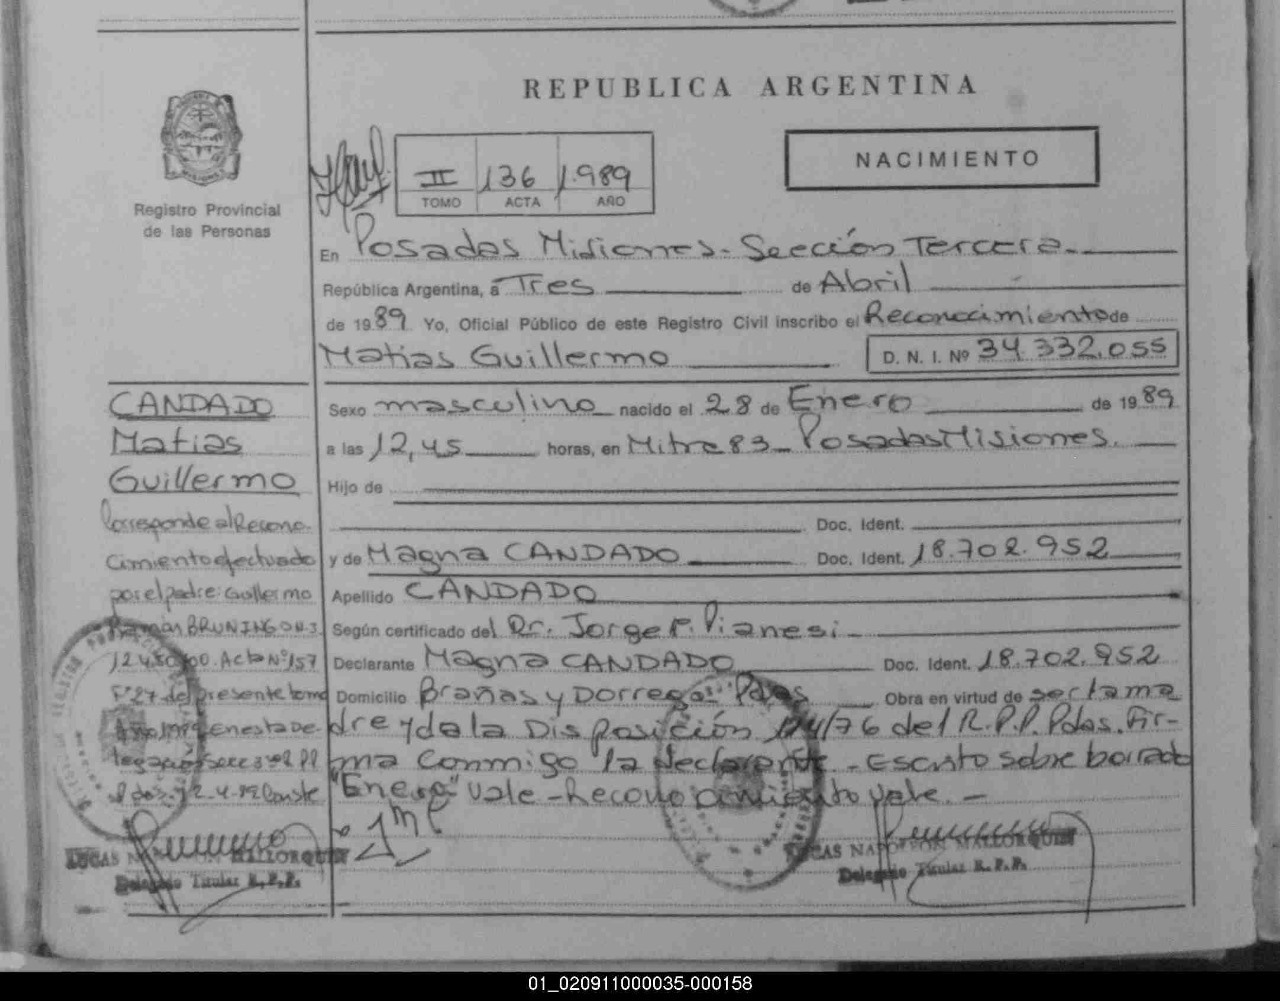 REPUBLICA ARGENTINA
NACIMIENTO
II 136 1.989
TOMO ACTA AÑO
Registro Provincial
de las Personas
En Posadas Misiones - Sección Tercera
República Argentina, a Tres de Abril
de 1989 Yo, Oficial Público de este Registro Civil inscribo el Reconocimiento de
Matias Guillermo D. N. I. Nº 34.332.055
Sexo masculino nacido el 28 de Enero de 1989
a las 12,45 horas, en Mitre 83 - Posadas Misiones.
Hijo de
Doc. Ident.
y de Magna CANDADO Doc. Ident. 18.702.952
Apellido CANDADO
Según certificado del Dr. Jorge P. Pianesi
Declarante Magna CANDADO Doc. Ident. 18.702.952
Domicilio Brañas y Dorrego - Pdas Obra en virtud de ser la ma
dre y de la Disposición 174/76 del R.P.P. Pdas. Fir-
ma conmigo la declarante. - Escrito sobre borrado
"Enero" vale - Reconocimiento vale. -
CANDADO
Matias
Guillermo
Corresponde al Recono-
cimiento efectuado
por el padre: Guillermo
Ramón BRUNING DNI
Acta Nº 157
Fº 27 del presente tomo
LUCAS NAPOLEON MALLORQUIN
Delegado Titular R.P.P.
LUCAS NAPOLEON MALLORQUIN
Delegado Titular R.P.P.
01_020911000035-000158